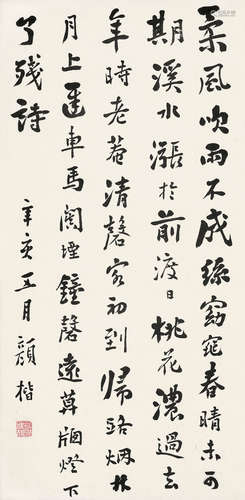 柔風吹雨不成絲窈窕春晴未可
期溪水漲於前渡日桃花濃過去
年時老菴清磬客初到歸路烟林
月上遲車馬鐘磬遠燈下
了殘詩
辛亥五月 顏楷